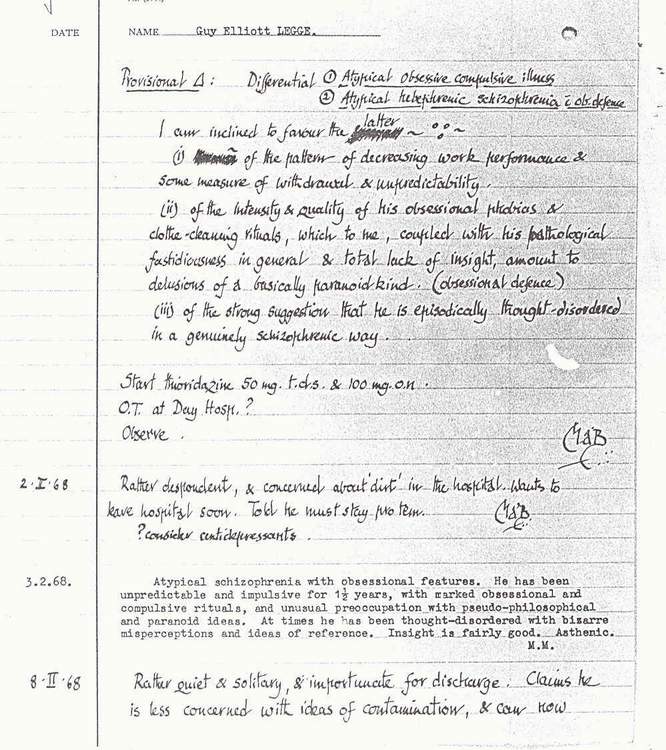 DATE
NAME Guy Elliott LEGGE.
Provisional Δ: Differential ① Atypical obsessive compulsive illness
② Atypical hebephrenic schizophrenia c̄ obs. defence
I am inclined to favour the latter ~ ∵ ~
(i) of the pattern of decreasing work performance &
some measure of withdrawal & unpredictability.
(ii) of the intensity & quality of his obsessional phobias &
clothe-cleaning rituals, which to me, coupled with his pathological
fastidiousness in general & total lack of insight, amount to
delusions of a basically paranoid kind. (obsessional defence)
(iii) of the strong suggestion that he is episodically thought-disordered
in a genuinely schizophrenic way.
Start thioridazine 50 mg. t.d.s. & 100 mg. o.n.
O.T. at Day Hosp.?
Observe.
MAB
2·II·68 Rather despondent, & concerned about 'dirt' in the hospital. Wants to
leave hospital soon. Told he must stay pro tem. MAB
? consider antidepressants.
3.2.68. Atypical schizophrenia with obsessional features. He has been
unpredictable and impulsive for 1½ years, with marked obsessional and
compulsive rituals, and unusual preoccupation with pseudo-philosophical
and paranoid ideas. At times he has been thought-disordered with bizarre
misperceptions and ideas of reference. Insight is fairly good. Asthenic.
M.M.
8·II·68 Rather quiet & solitary, & importunate for discharge. Claims he
is less concerned with ideas of contamination, & can now